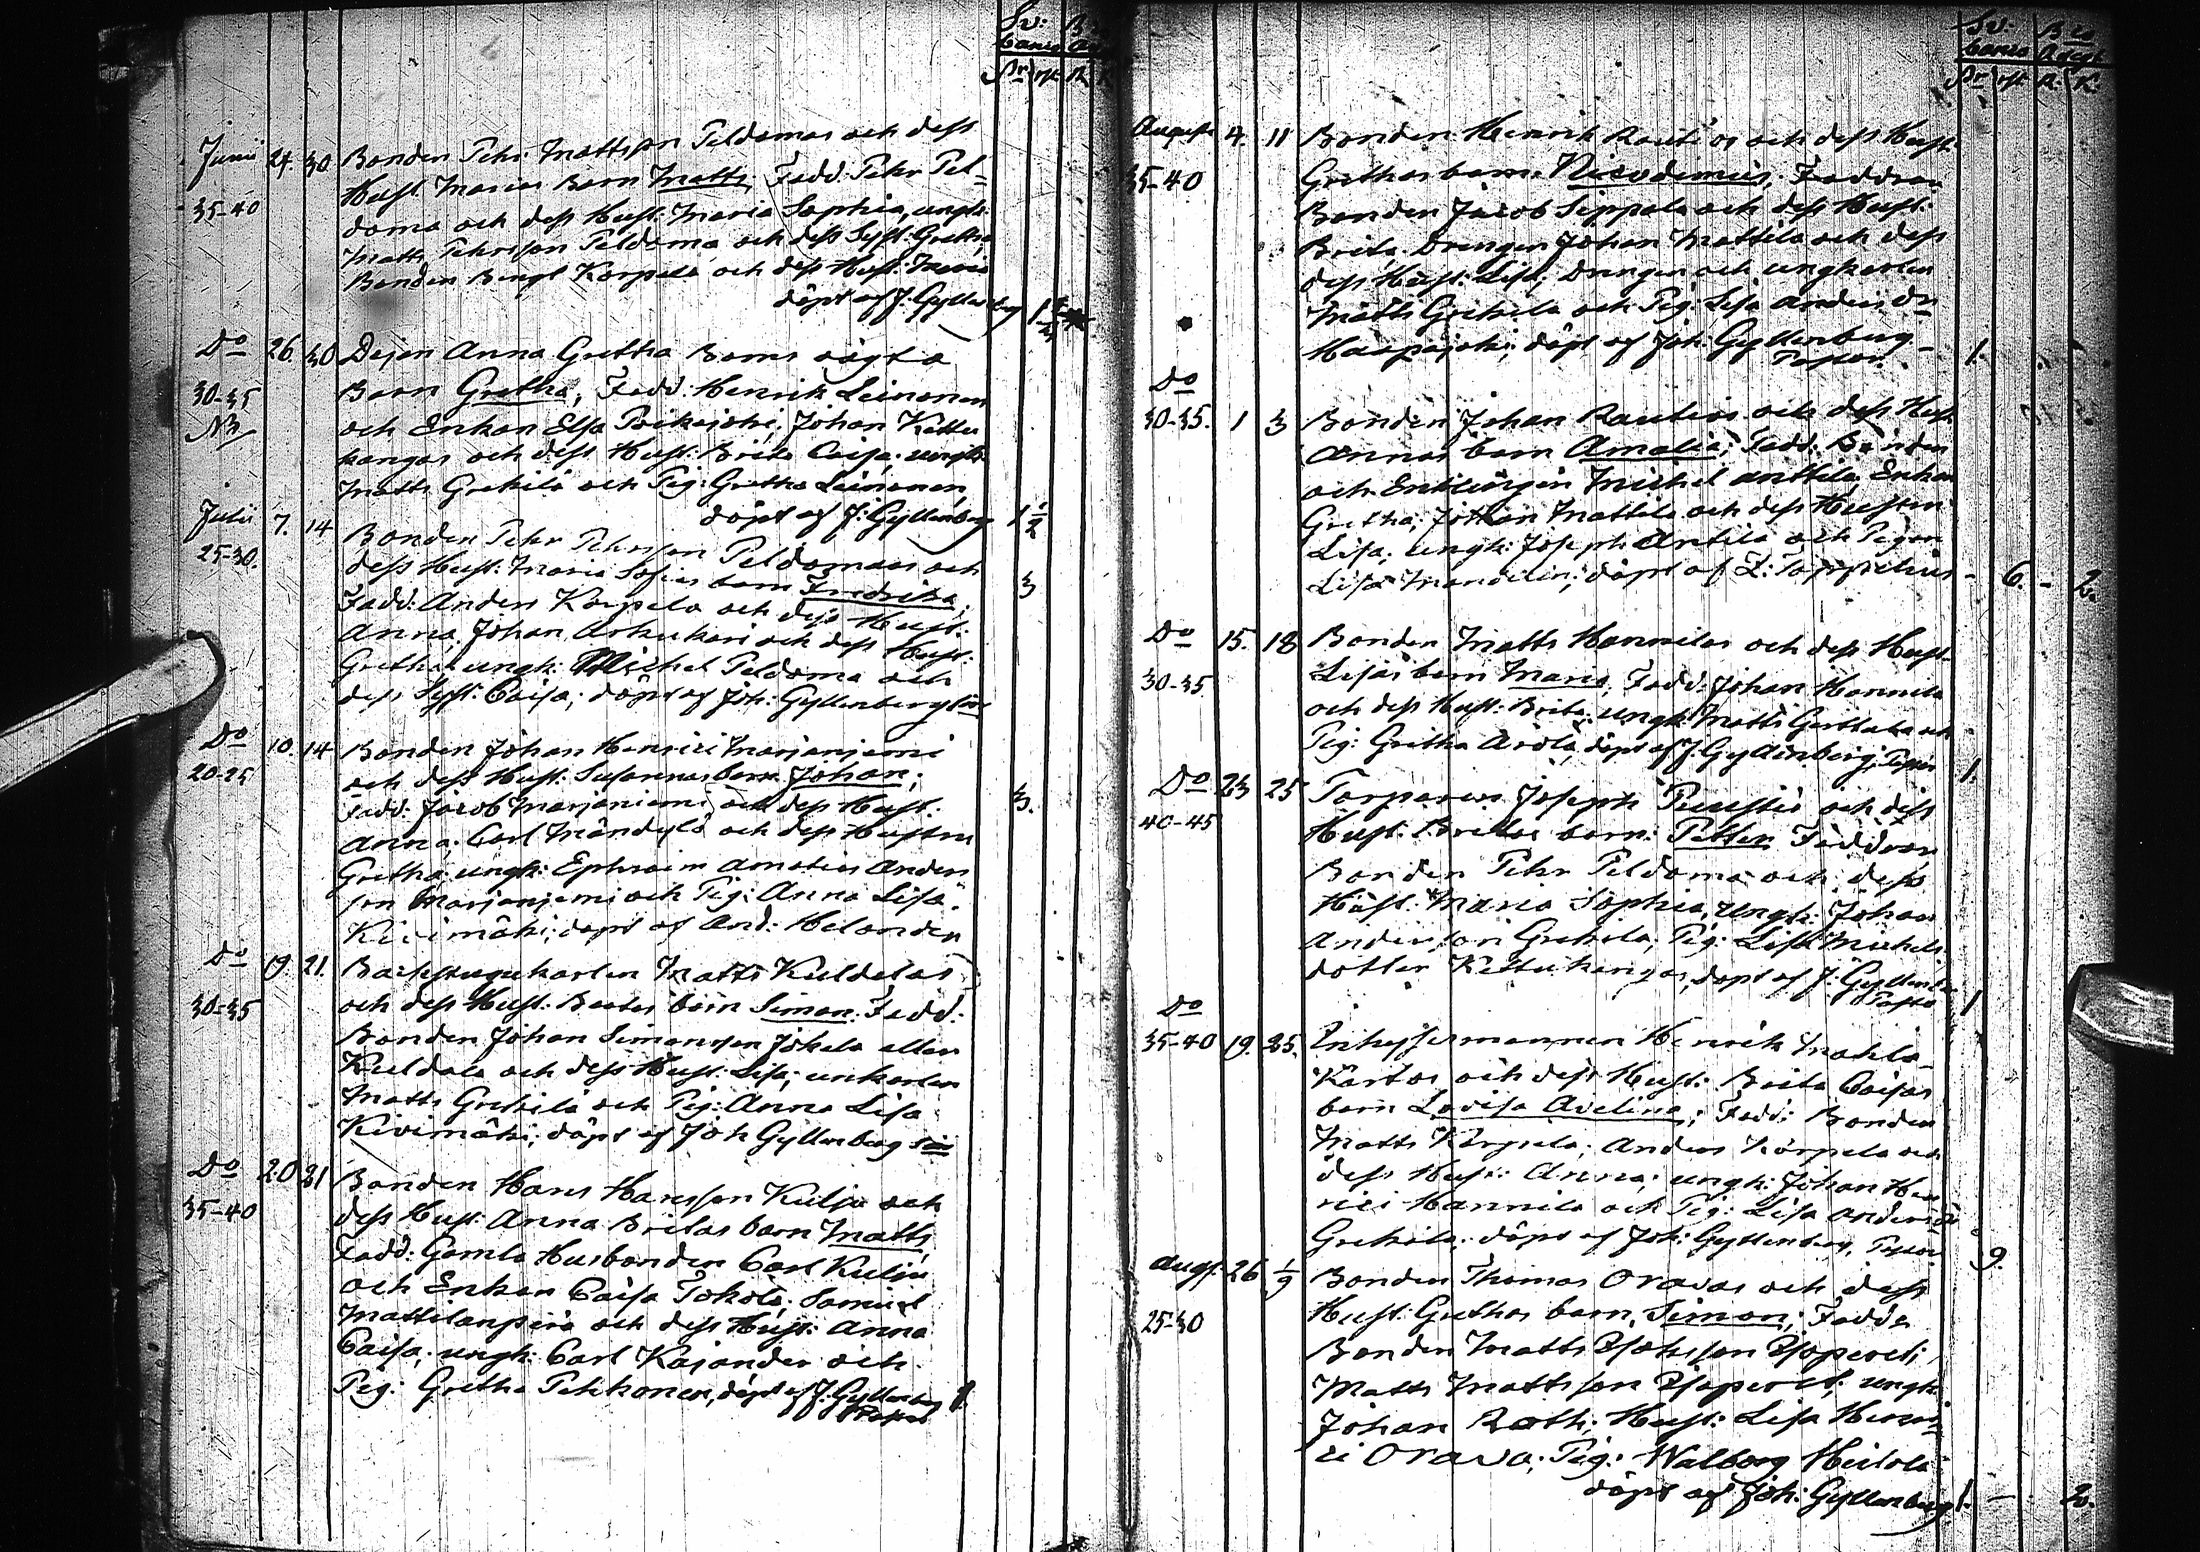 Sv: B:
banco
Rdr rst R K
Junii 24. 30 Bonden Pehr Mattsson Peldomas och dess
Hust. Marias Barn Matts, Fadd. Pehr Pel=
35-40
doma och dess Hust: Maria Sophia, ungk:
Matts Pehrsson Peldoma och dess Syst: Gretha,
Bonden Bengt Korpela och dess Hust: Maria
döpt af J. Gyllenberg 1
Do 26. 30 Dejan Anna Gretha Bomas oägta
30-35 Barn Gretha, Fadd: Henrik Leinonen
NB och Enkan Elsa Poikajoki, Johan Kettu
kangas och dess Hust: Brita Caisa, ungk:
Matts Grekilä och Pig: Gretha Leinonen,
döpt af J: Gyllenberg 1 1/2
Julii 7. 14 Bonden Pehr Pehrsson Peldomas och
25-30. dess Hust: Maria Sofias barn Fredrika; 3
Fadd: Anders Korpela och dess Hust:
Anna, Johan Arkukari och dess Hust:
Gretha ungk: Michel Peldoma och
dess Syst: Caisa; döpt af Joh: Gyllenberg
Do 10. 14 Bonden Johan Henrici Marjaniemi
20-25 och dess Hust: Susannas barn Johan;
Fadd: Jacob Marjaniemi och dess Hust: 3.
Anna; Carl Mändylä och dess Hustru
Gretha ungk: Ephraim Amatius Anders
son Marjaniemi och Pig: Anna Lisa
Kivimäki; döpt af And: Helander
Do 19. 21. Backstugukarlen Matts Kuldelas
30-35 och dess Hust: Beatas barn Simon: Fadd:
Bonden Johan Simonsson Jokela eller
Kuldala och dess Hust: Lisa; unkarlen
Matts Grekilä och Pig: Anna Lisa
Kivimäki; döpt af Joh Gyllenberg
Do 20 21 Bonden Hans Hansson Kulju och
35-40 dess Hust: Anna Britas barn Matts
Fadd: Gamla Husbonden Carl Kulju
och Enkan Caisa Tokola; Samuel
Mattilanperä och dess Hust: Anna
Caisa; ungk: Carl Kajander och
Pig: Gretha Pekkonen, döpt af J: Gyllenberg 1.
Pastor
Sv: Bco
banco Assgt
Rdr rst R: K:
Augusti 4. 11 Bonden Henrik Rautios och dess Hust:
35-40 Grethas barn Nicodimus; Faddrar
Bonden Jacob Seppala och dess Hust:
Brita Drengen Johan Mattila och dess
dess Hust: Lisa; Drengen och ungkarlen
Matts Grekila och Pig: Lisa Anders dr
Haapajoki; döpt af Joh: Gyllenberg 1.
Pastor.
Do
30-35. 1 3 Bonden Johan Rautios och dess Hust
Annas barn Amalia; Fadd: Bonden
och Enklingen Michel Anttila, Enkan
Gretha; Johan Mattila och dess Hustru
Lisa; ungk: Joseph Antila och Pigan
Lisa Mandelin; döpt af Z: Toppelius - 6. - 2.
Do 15. 18 Bonden Matts Hannilas och dess Hust
30-35 Lisas barn Maria, Fadd: Johan Hannila
och dess Hust: Brita; ungk: Matts Gerttala och
Pig: Gretha Arola, döpt af J: Gyllenberg, Pastor 1.
Do 23 25 Torparen Joseph Puustis och dess
40-45 Hust: Britas barn: Petter, Faddrar
Bonden Pehr Peldoma och dess
Hust: Maria Sophia, Ungk: Johan
Andersson Grekila, Pig: Lisa Michels
dotter Kettukangas, döpt af J: Gyllenberg
Pastor 1
Do
35-40 19. 25. Inhyssesmannen Henrik Makla
Kartos och dess Hust: Brita Caisas
barn Lovisa Avelina; Fadd: Bonden
Matts Korpela; Anders Korpela och
dess Hust: Anna; ungk: Johan Hen
rici Hannila och Pig: Lisa Anders dr
Grekila; döpt af Joh: Gyllenberg, Pastor 9.
Augt. 26 1/9 Bonden Thomas Oravas och dess
25-30 Hust: Grethas barn, Simon; Faddr
Bonden Matts
Matts Mattsson ungk:
Johan Roth; Hust: Lisa Henri
ci Orava; Pig: Walborg Heitola
döpt af Joh: Gyllenberg 1. - 2.